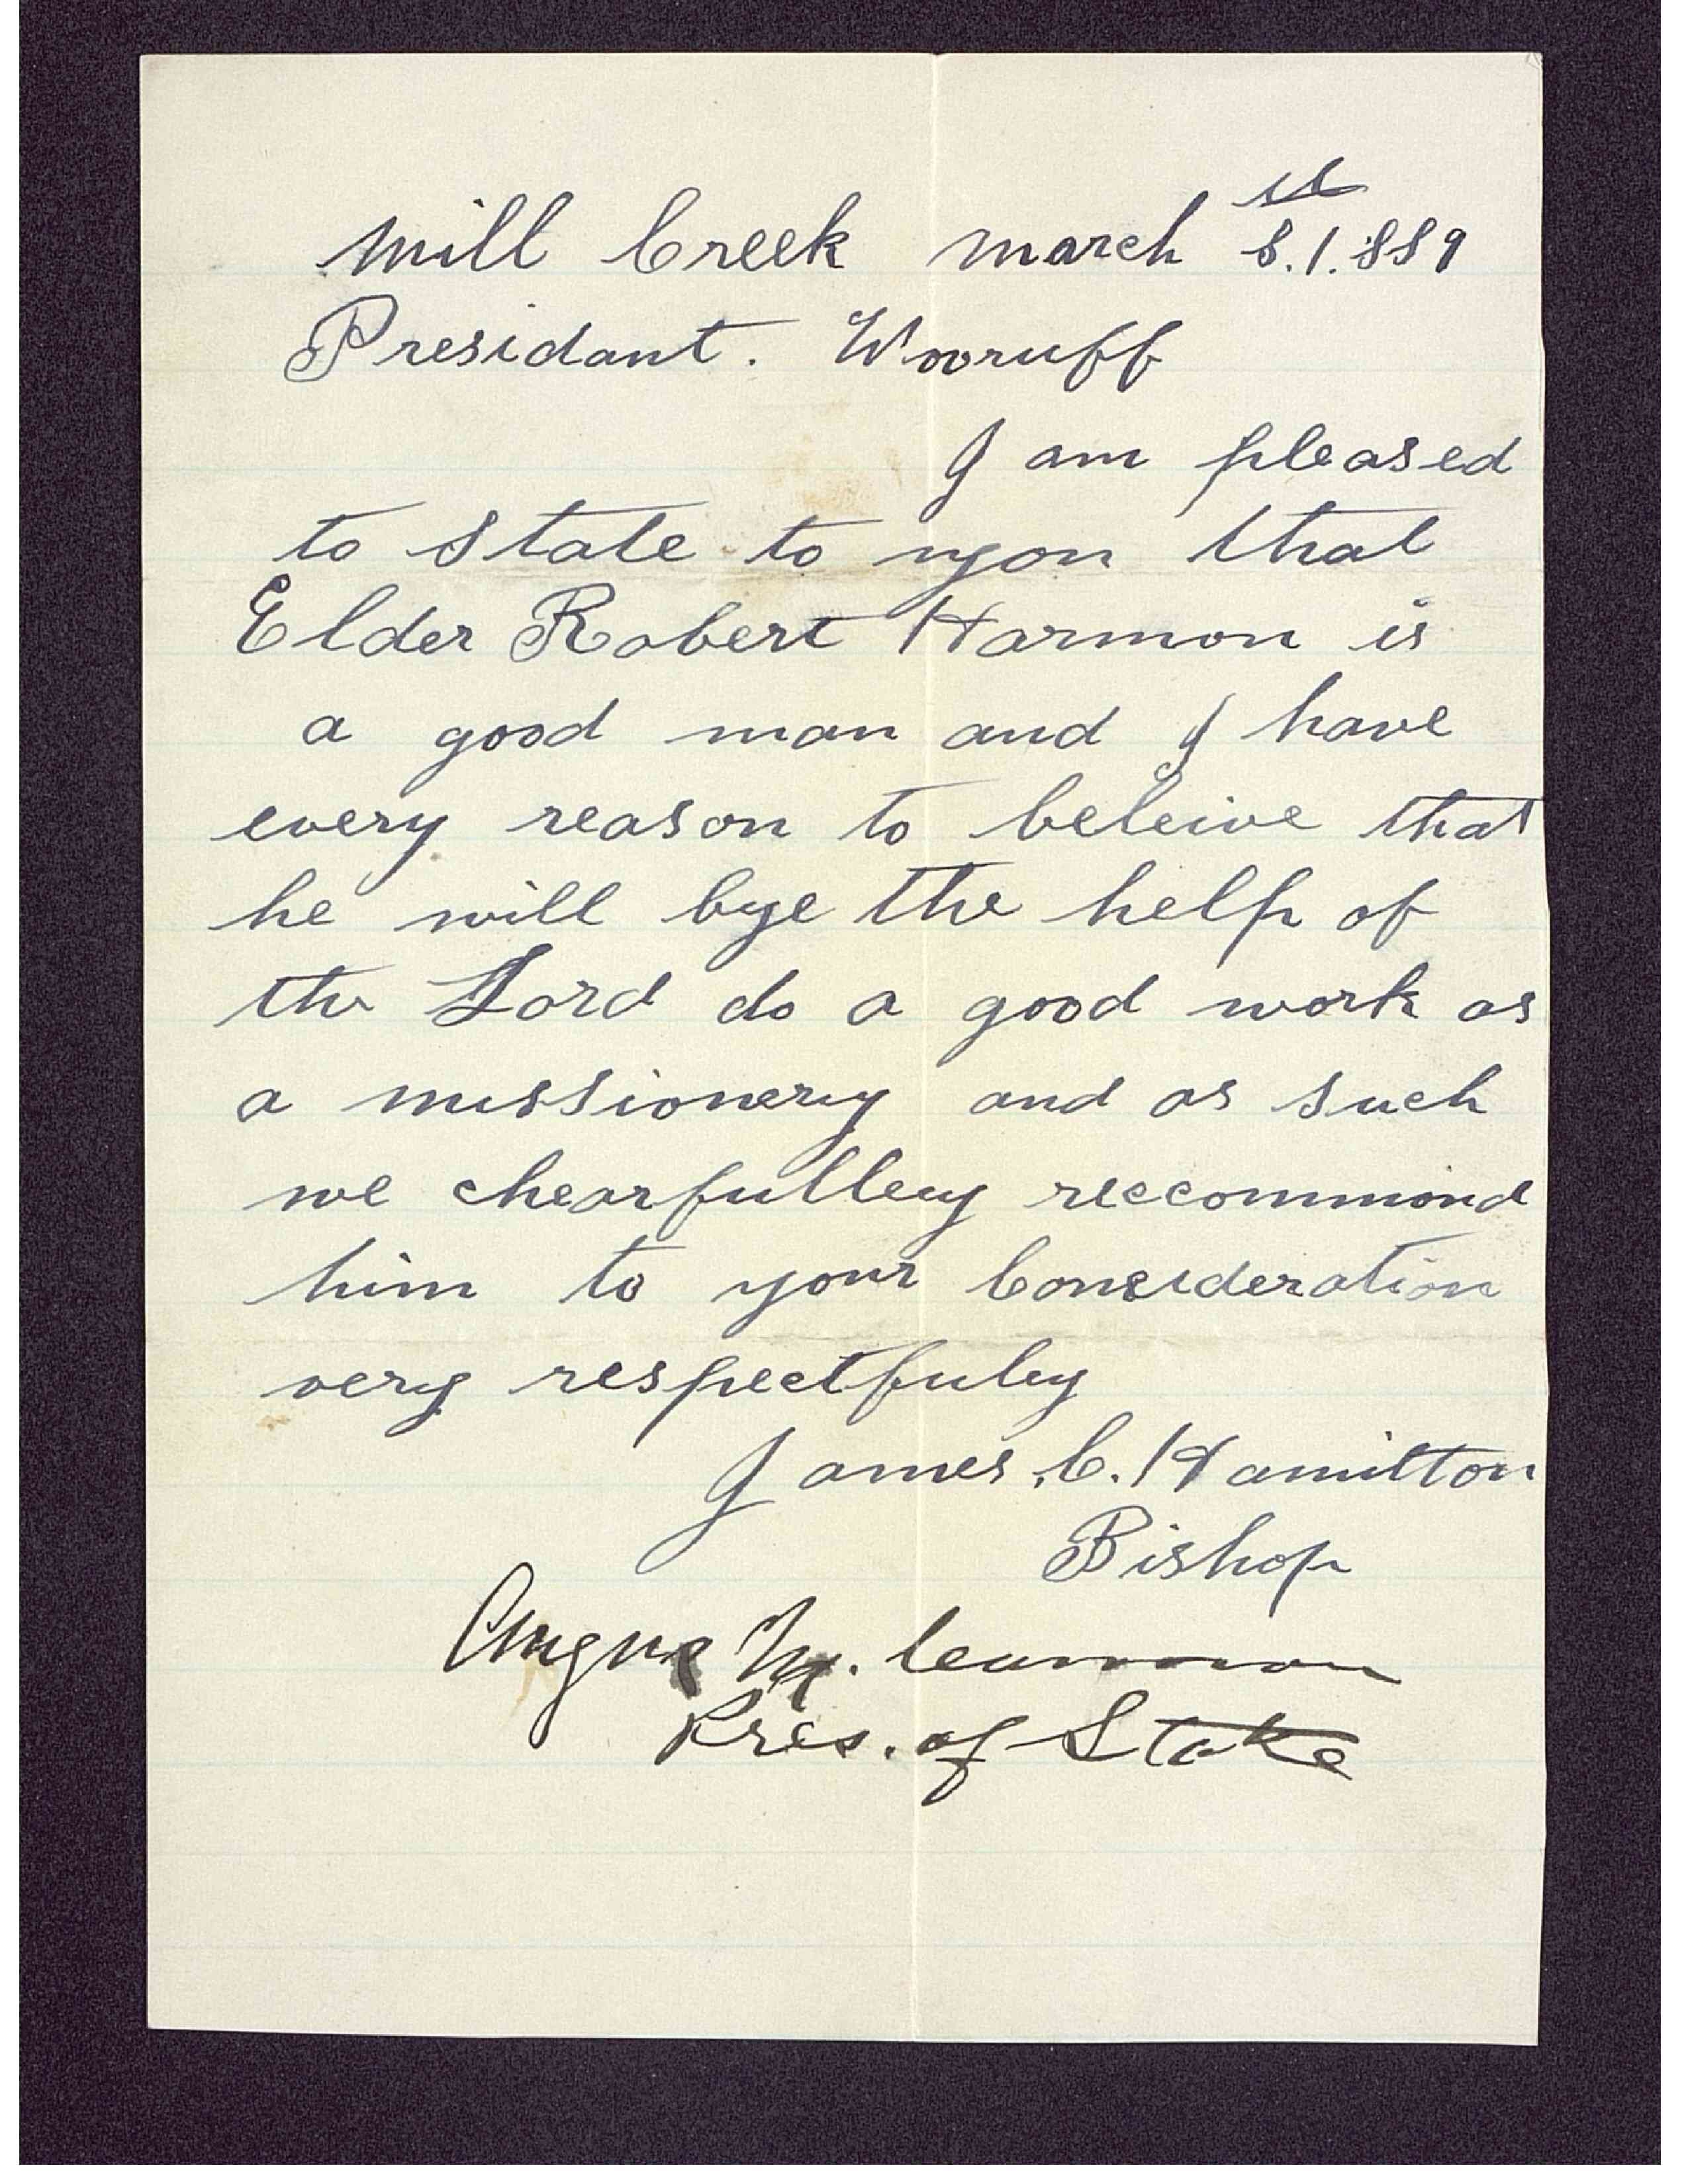 Mill Creek march 8.st 1.889
Presidant. Wooruff
I am pleased
to state to you that
Elder Robert Harmon is
a good man and I have
every reason to beleive that
he will bye the help of
the Lord do a good work as
a missionery and as such
we chearfulley reccommend
him to your Consideration
very respectfuley
James. C. Hamilton
Bishop
Angus M. Cannon
Pres. of Stake